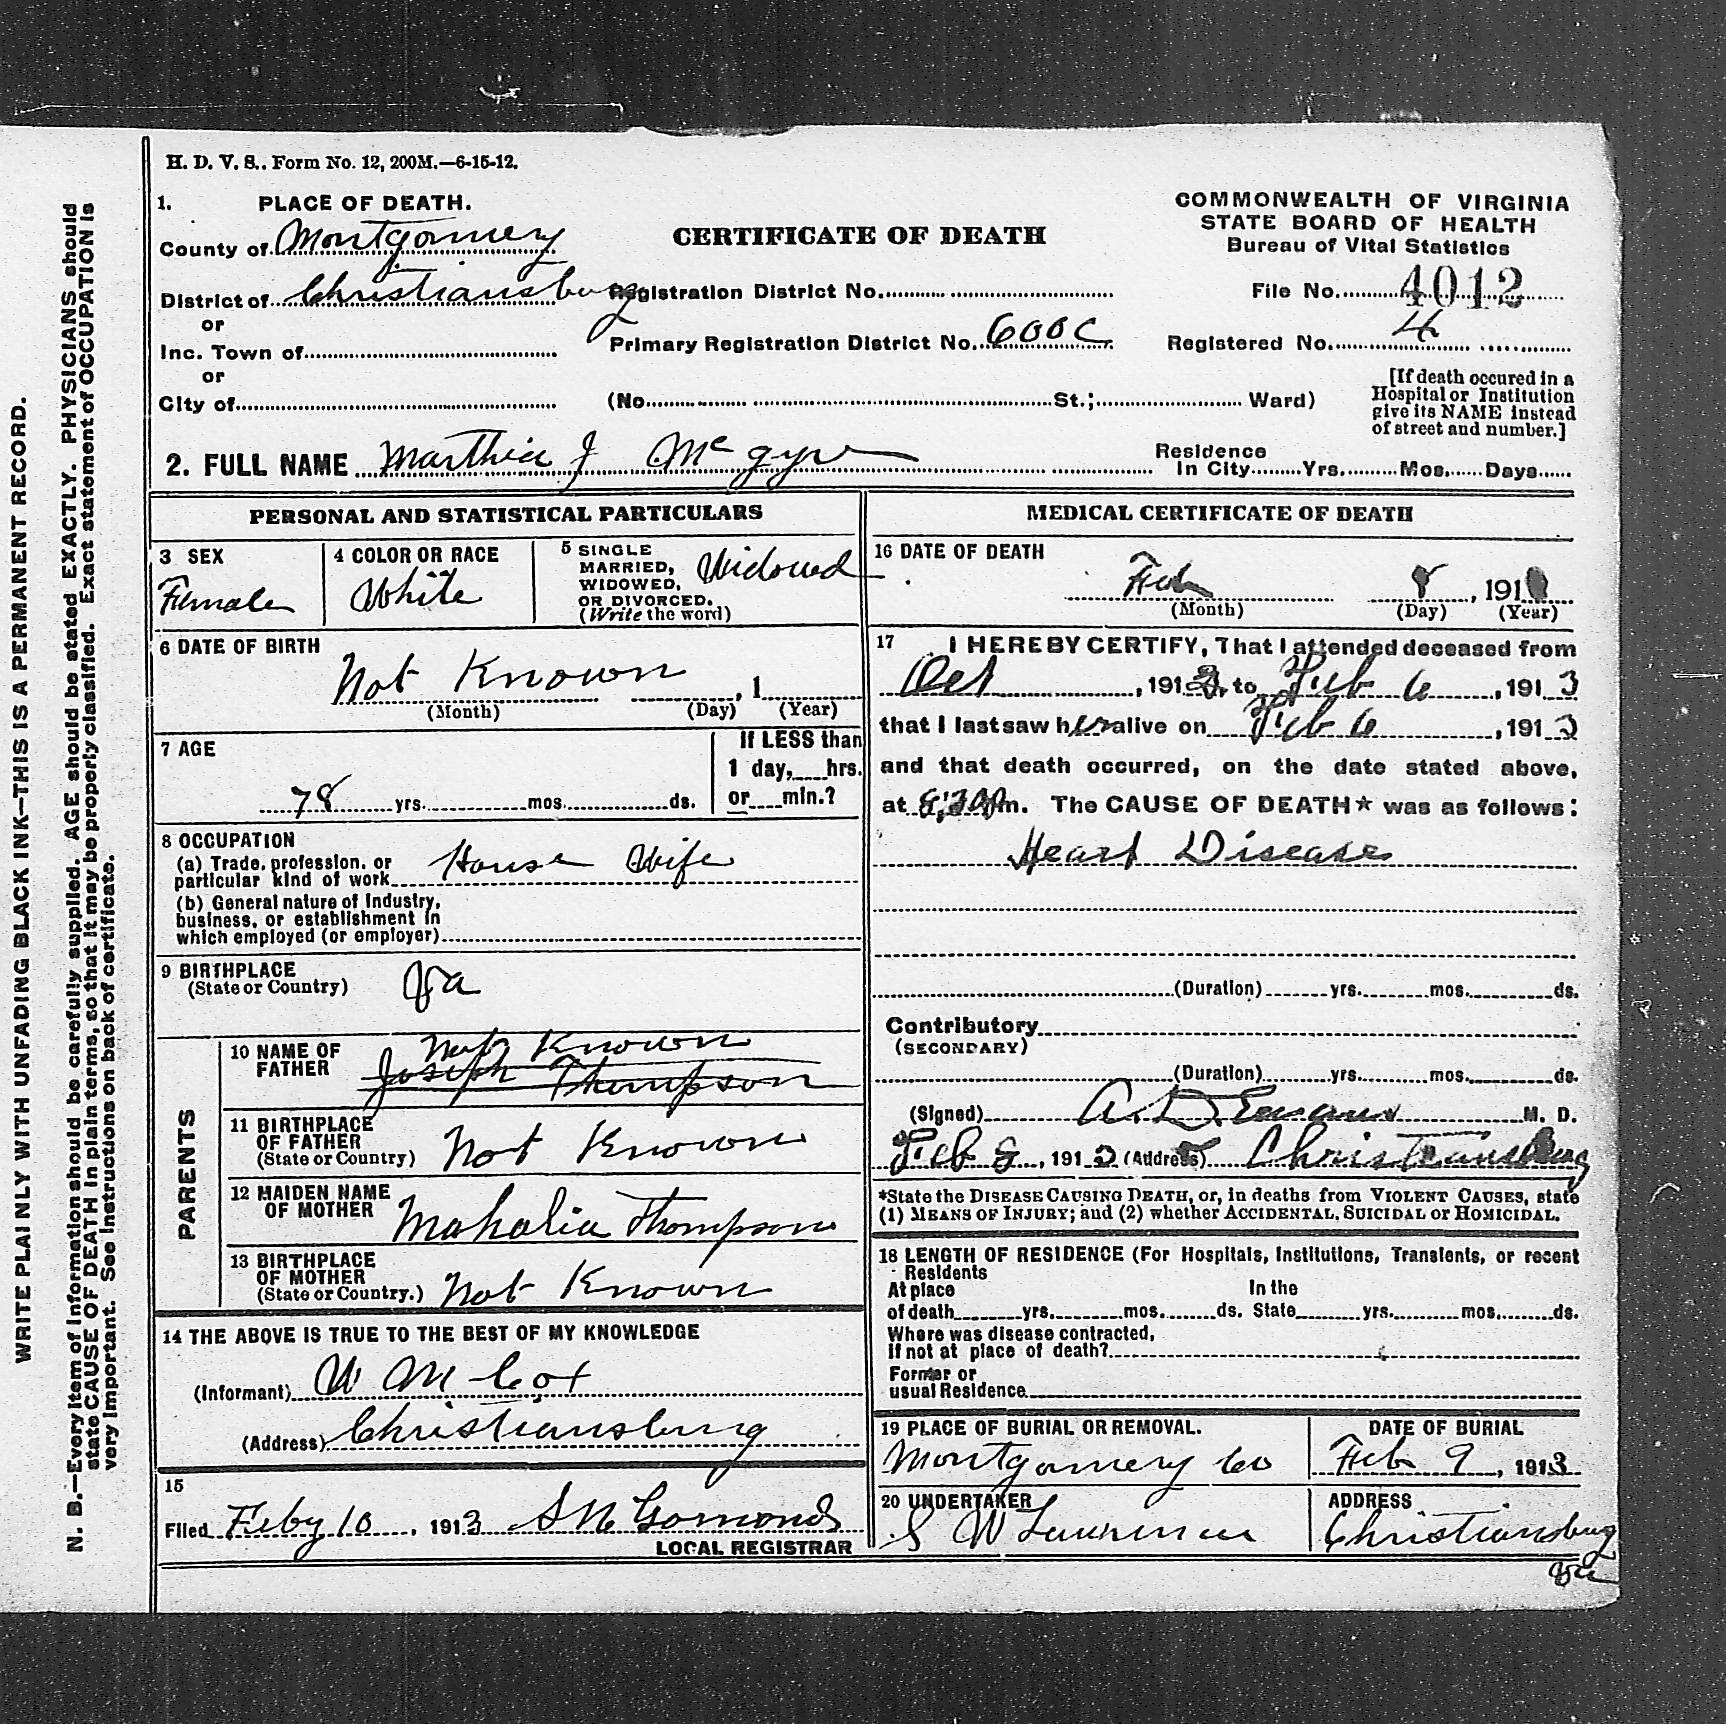 H. D. V. S.. Form No. 12, 200M.—6-15-12.
1. PLACE OF DEATH.
County of Montgomery
District of Christiansburg
or
Inc. Town of
or
City of
CERTIFICATE OF DEATH
Registration District No.
Primary Registration District No. 600C
(No. St.; Ward)
COMMONWEALTH OF VIRGINIA
STATE BOARD OF HEALTH
Bureau of Vital Statistics
File No. 4012
Registered No. 4
[If death occured in a
Hospital or Institution
give its NAME instead
of street and number.]
2. FULL NAME Marthia J
Residence
In City Yrs. Mos. Days
PERSONAL AND STATISTICAL PARTICULARS
3 SEX
Female
4 COLOR OR RACE
White
5 SINGLE
MARRIED,
WIDOWED,
OR DIVORCED.
(Write the word)
Widowed
6 DATE OF BIRTH
Not Known , 1
(Month) (Day) (Year)
7 AGE
78 yrs. mos. ds.
If LESS than
1 day, hrs.
or min.?
8 OCCUPATION
(a) Trade, profession, or
particular kind of work House Wife
(b) General nature of Industry,
business, or establishment in
which employed (or employer)
9 BIRTHPLACE
(State or Country) Va
PARENTS
10 NAME OF
FATHER
Not Known
Joseph Thompson
11 BIRTHPLACE
OF FATHER
(State or Country) Not Known
12 MAIDEN NAME
OF MOTHER Mahalia Thompson
13 BIRTHPLACE
OF MOTHER
(State or Country.) Not Known
14 THE ABOVE IS TRUE TO THE BEST OF MY KNOWLEDGE
(Informant) W M Cox
(Address) Christiansburg
15
Filed Feby 10, 1913
LOCAL REGISTRAR
MEDICAL CERTIFICATE OF DEATH
16 DATE OF DEATH
Feb 8, 191
(Month) (Day) (Year)
17 I HEREBY CERTIFY, That I attended deceased from
Oct , 1912, to Feb 6 , 1913
that I last saw her alive on Feb 6 , 1913
and that death occurred, on the date stated above,
at m. The CAUSE OF DEATH* was as follows:
Heart Disease
(Duration) yrs. mos. ds.
Contributory
(SECONDARY)
(Duration) yrs. mos. ds.
(Signed) A. D. M. D.
Feb 8, 1913 (Address) Christiansburg
*State the DISEASE CAUSING DEATH, or, in deaths from VIOLENT CAUSES, state
(1) MEANS OF INJURY; and (2) whether ACCIDENTAL, SUICIDAL or HOMICIDAL.
18 LENGTH OF RESIDENCE (For Hospitals, Institutions, Transients, or recent
Residents
At place In the
of death yrs. mos. ds. State yrs. mos. ds.
Where was disease contracted,
If not at place of death?
Former or
usual Residence
19 PLACE OF BURIAL OR REMOVAL.
Montgomery Co
DATE OF BURIAL
Feb 9, 1913
20 UNDERTAKER
S W
ADDRESS
Christiansburg
Va
WRITE PLAINLY WITH UNFADING BLACK INK—THIS IS A PERMANENT RECORD.
N. B.—Every item of information should be carefully supplied. AGE should be stated EXACTLY. PHYSICIANS should
state CAUSE OF DEATH in plain terms, so that it may be properly classified. Exact statement of OCCUPATION is
very important. See instructions on back of certificate.